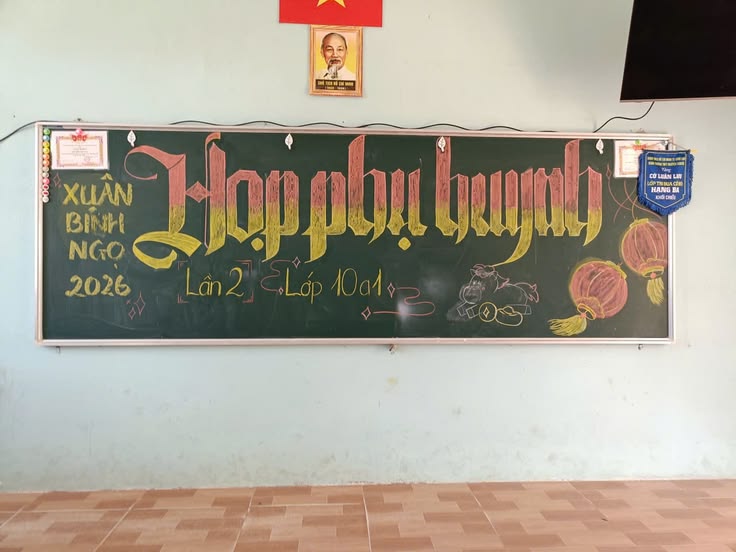 CHỦ TỊCH HỒ CHÍ MINH
XUÂN
BÍNH
NGỌ
2026
Họp phụ huynh
Lần 2
Lớp 10a1
CỜ LUÂN LƯU
LỚP THI ĐUA CÔNG
HẠNG BA
KHỐI CHIỀU